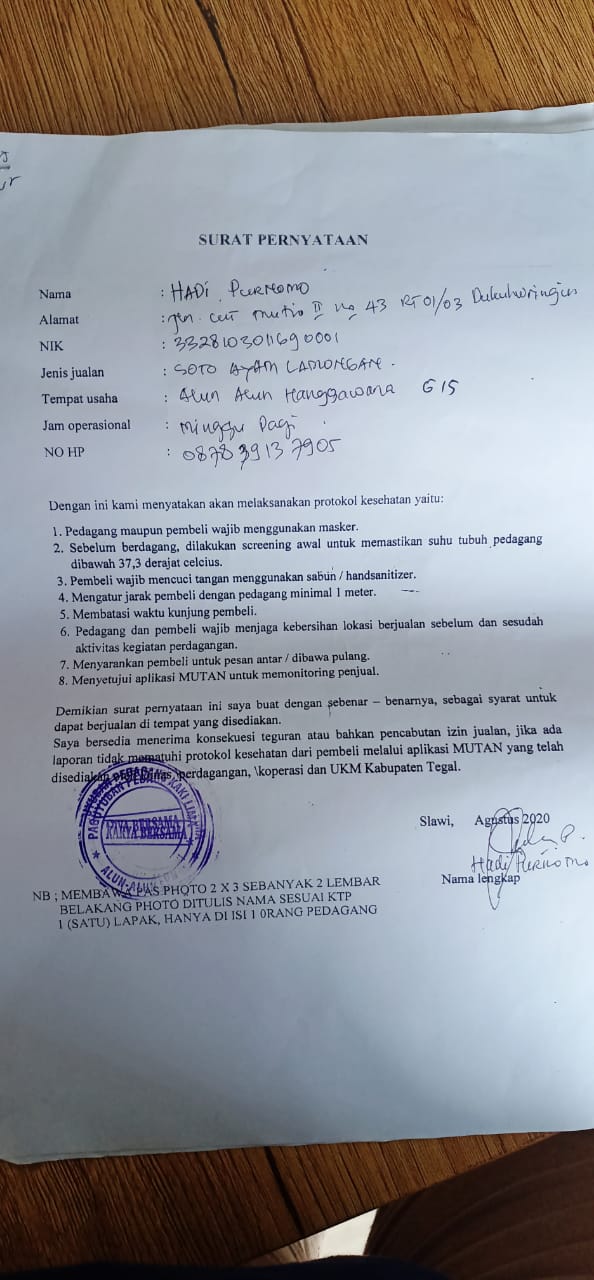 SURAT PERNYATAAN
Nama : HADI PURNOMO
Alamat : Jln. Cut Mutia II No 43 RT 01/03 Dukuhwringin
NIK : 3328103011690001
Jenis jualan : SOTO AYAM LAMONGAN.
Tempat usaha : Alun Alun Hanggawana G15
Jam operasional : Minggu Pagi
NO HP : 0878 3913 7905
Dengan ini kami menyatakan akan melaksanakan protokol kesehatan yaitu:
1. Pedagang maupun pembeli wajib menggunakan masker.
2. Sebelum berdagang, dilakukan screening awal untuk memastikan suhu tubuh pedagang
dibawah 37,3 derajat celcius.
3. Pembeli wajib mencuci tangan menggunakan sabun / handsanitizer.
4. Mengatur jarak pembeli dengan pedagang minimal 1 meter.
5. Membatasi waktu kunjung pembeli.
6. Pedagang dan pembeli wajib menjaga kebersihan lokasi berjualan sebelum dan sesudah
aktivitas kegiatan perdagangan.
7. Menyarankan pembeli untuk pesan antar / dibawa pulang.
8. Menyetujui aplikasi MUTAN untuk memonitoring penjual.
Demikian surat pernyataan ini saya buat dengan sebenar – benarnya, sebagai syarat untuk
dapat berjualan di tempat yang disediakan.
Saya bersedia menerima konsekuesi teguran atau bahkan pencabutan izin jualan, jika ada
laporan tidak mematuhi protokol kesehatan dari pembeli melalui aplikasi MUTAN yang telah
disediakan oleh Dinas, perdagangan, \koperasi dan UKM Kabupaten Tegal.
KARYA BERSAMA
Slawi, Agustus 2020
Hadi Purnomo
Nama lengkap
NB ; MEMBAWA PAS PHOTO 2 X 3 SEBANYAK 2 LEMBAR
BELAKANG PHOTO DITULIS NAMA SESUAI KTP
1 (SATU) LAPAK, HANYA DI ISI 1 0RANG PEDAGANG